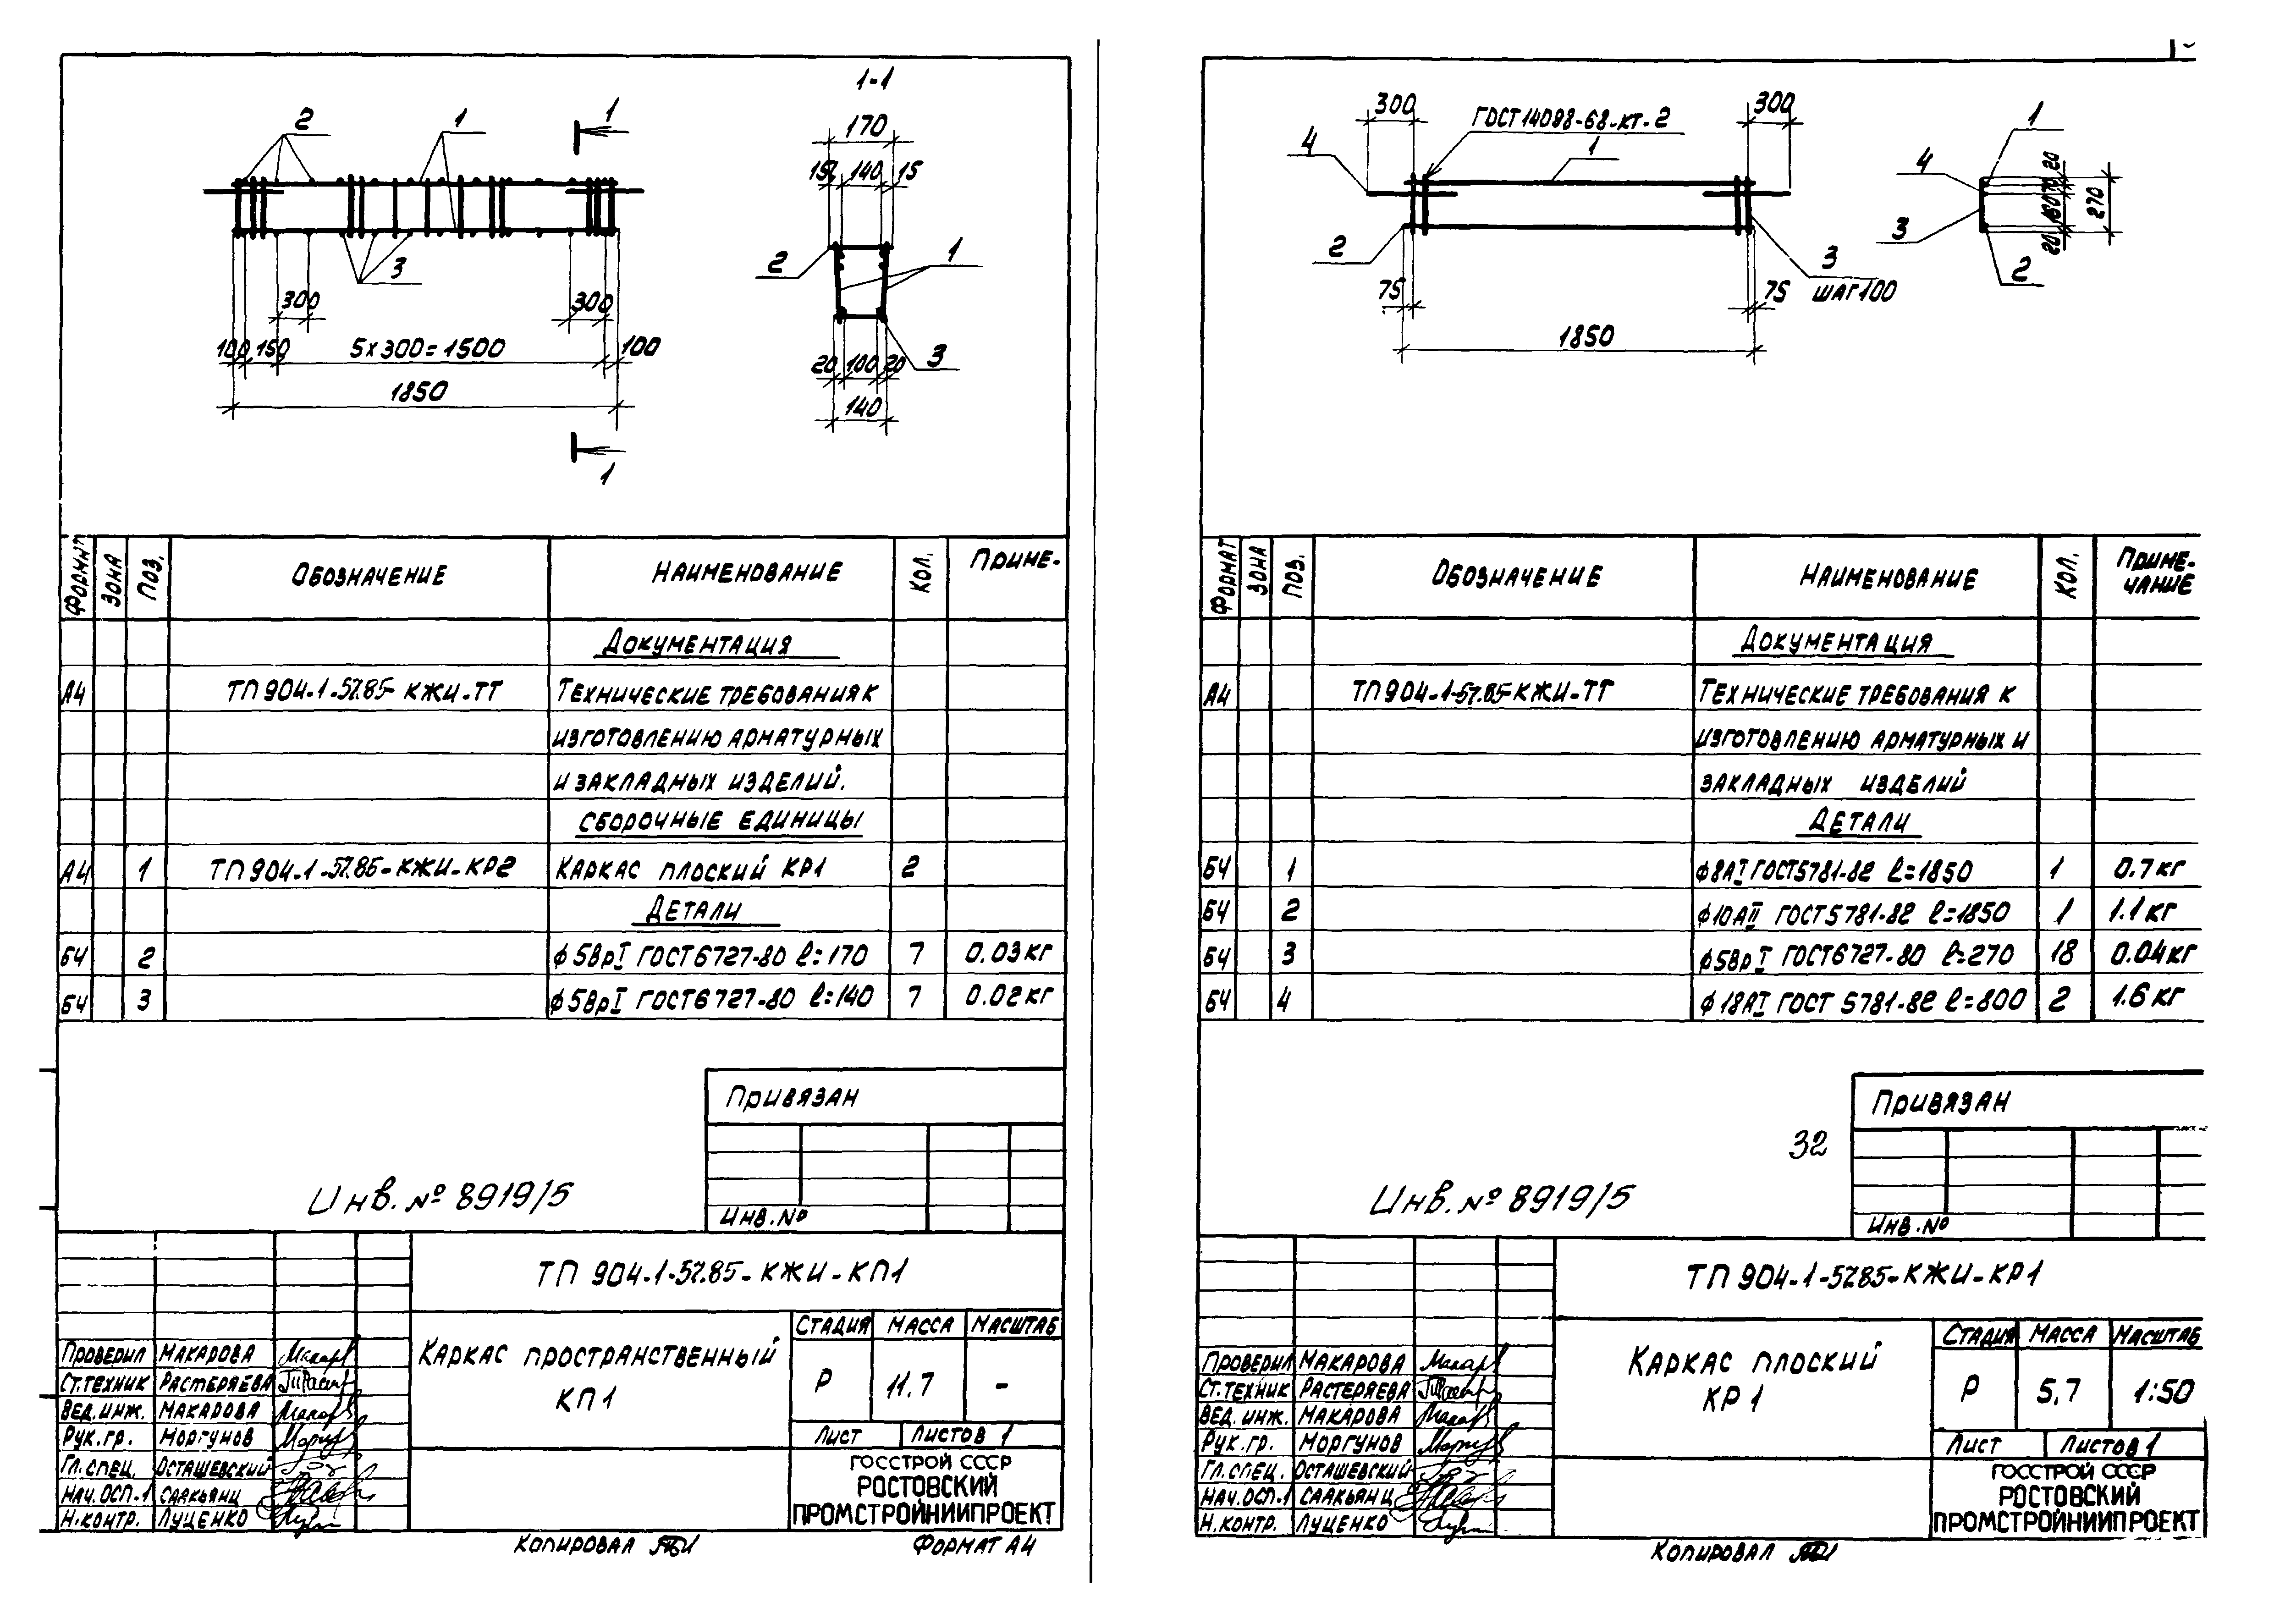 1-1
2
1
1
170
15 140 15
2
1
3
300
300
100 150 5×300=1500 100
1850
1
20 100 20
3
140
ФОРМАТ ЗОНА ПОЗ. ОБОЗНАЧЕНИЕ НАИМЕНОВАНИЕ КОЛ. ПРИМЕ-
ДОКУМЕНТАЦИЯ
А4 ТП 904-1-57.85-КЖИ-ТТ ТЕХНИЧЕСКИЕ ТРЕБОВАНИЯ К
ИЗГОТОВЛЕНИЮ АРМАТУРНЫХ
И ЗАКЛАДНЫХ ИЗДЕЛИЙ.
СБОРОЧНЫЕ ЕДИНИЦЫ
А4 1 ТП 904-1-57.85-КЖИ-КР2 КАРКАС ПЛОСКИЙ КР1 2
ДЕТАЛИ
БЧ 2 ф5ВрI ГОСТ6727-80 ℓ=170 7 0.03кг
БЧ 3 ф5ВрI ГОСТ6727-80 ℓ=140 7 0.02кг
ПРИВЯЗАН
Инв. № 8919/5
ИНВ.№
ТП 904-1-57.85-КЖИ-КП1
КАРКАС ПРОСТРАНСТВЕННЫЙ
КП1
СТАДИЯ МАССА МАСШТАБ
Р 11.7 -
ЛИСТ ЛИСТОВ 1
ПРОВЕРИЛ МАКАРОВА
СТ.ТЕХНИК РАСТЕРЯЕВА
ВЕД.ИНЖ. МАКАРОВА
РУК.ГР. МОРГУНОВ
ГЛ.СПЕЦ. ОСТАШЕВСКИЙ
НАЧ.ОСП-1 СААКЬЯНЦ
Н.КОНТР. ЛУЦЕНКО
ГОССТРОЙ СССР
РОСТОВСКИЙ
ПРОМСТРОЙНИИПРОЕКТ
КОПИРОВАЛ
ФОРМАТ А4
300
ГОСТ14098-68-КТ-2
300
4
1
2
3
ШАГ 100
75
75
1850
1
4
3
2
20
70
160
20
270
ФОРМАТ ЗОНА ПОЗ. ОБОЗНАЧЕНИЕ НАИМЕНОВАНИЕ КОЛ. ПРИМЕ-
ЧАНИЕ
ДОКУМЕНТАЦИЯ
А4 ТП904-1-57.85-КЖИ-ТТ ТЕХНИЧЕСКИЕ ТРЕБОВАНИЯ К
ИЗГОТОВЛЕНИЮ АРМАТУРНЫХ И
ЗАКЛАДНЫХ ИЗДЕЛИЙ
ДЕТАЛИ
БЧ 1 ф8АI ГОСТ5781-82 ℓ=1850 1 0.7кг
БЧ 2 ф10АII ГОСТ5781-82 ℓ=1850 1 1.1кг
БЧ 3 ф5ВрI ГОСТ6727-80 ℓ=270 18 0.04кг
БЧ 4 ф18АI ГОСТ 5781-82 ℓ=800 2 1.6кг
ПРИВЯЗАН
32
Инв. № 8919/5
ИНВ.№
ТП 904-1-57.85-КЖИ-КР1
КАРКАС ПЛОСКИЙ
КР1
СТАДИЯ МАССА МАСШТАБ
Р 5,7 1:50
ЛИСТ ЛИСТОВ 1
ПРОВЕРИЛ МАКАРОВА
СТ.ТЕХНИК РАСТЕРЯЕВА
ВЕД.ИНЖ. МАКАРОВА
РУК.ГР. МОРГУНОВ
ГЛ.СПЕЦ. ОСТАШЕВСКИЙ
НАЧ.ОСП-1 СААКЬЯНЦ
Н.КОНТР. ЛУЦЕНКО
ГОССТРОЙ СССР
РОСТОВСКИЙ
ПРОМСТРОЙНИИПРОЕКТ
КОПИРОВАЛ